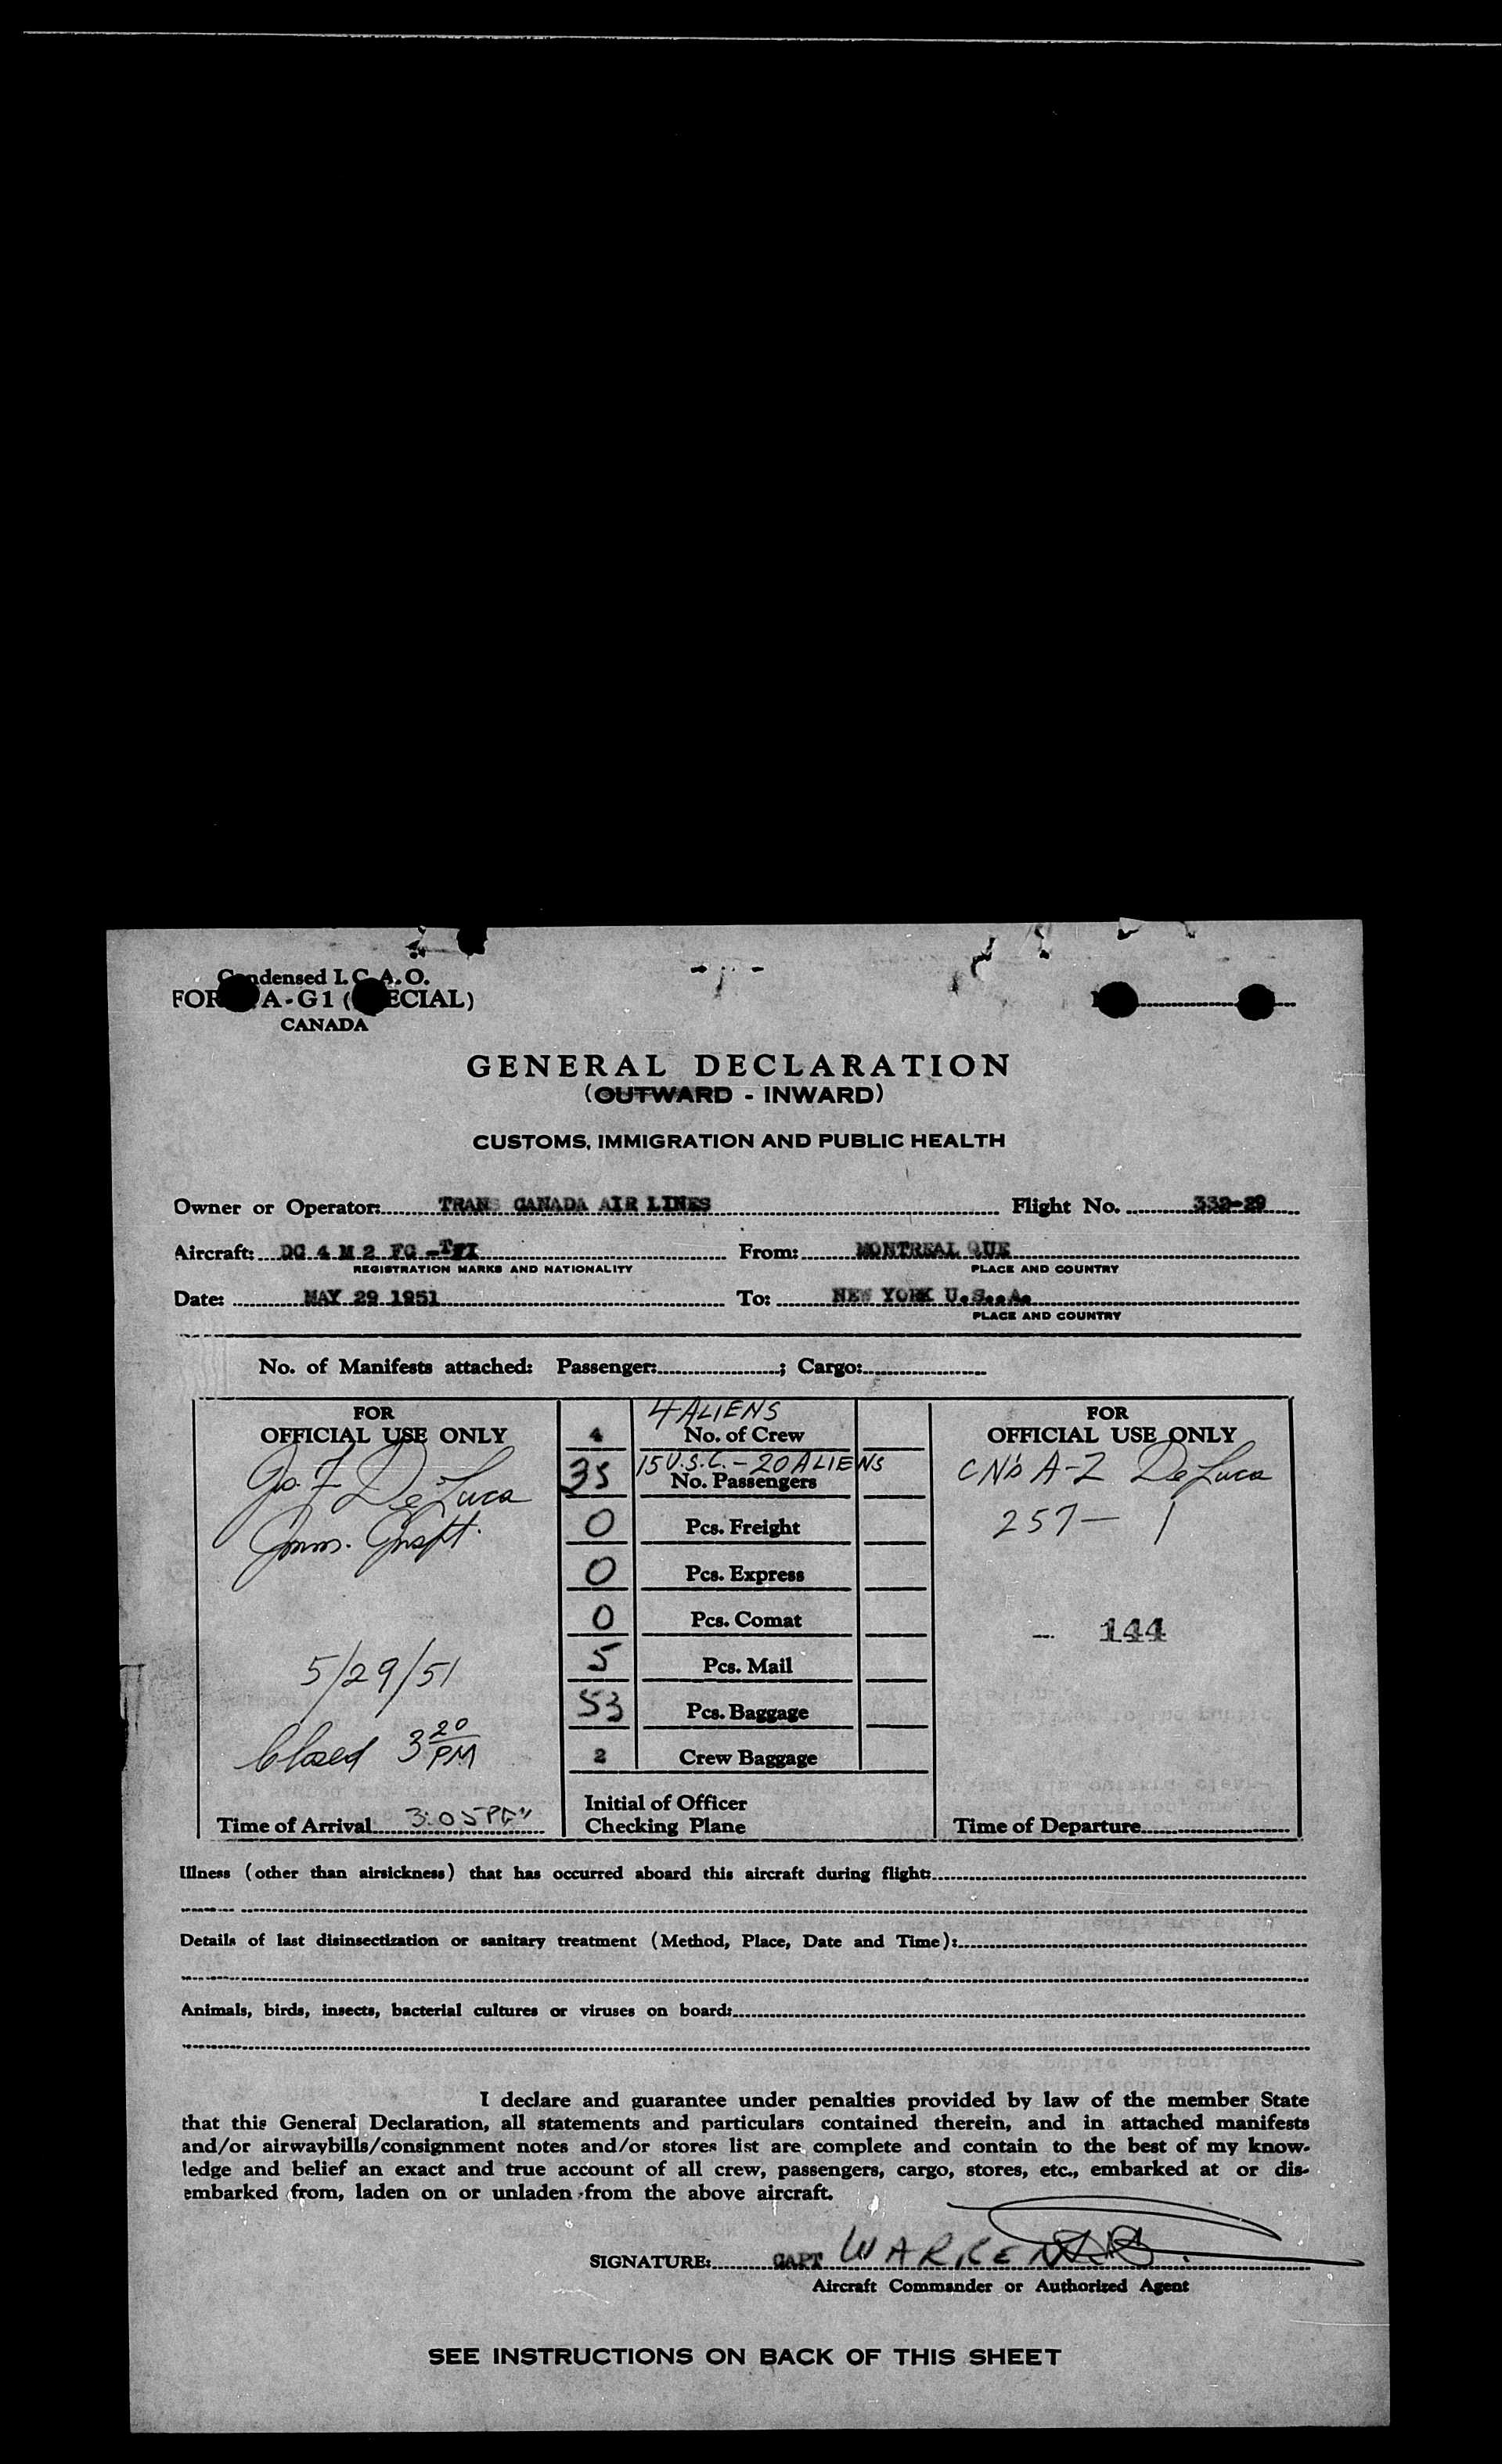 Condensed I.C.A.O.
FOR A-G1 ( ECIAL)
CANADA
GENERAL DECLARATION
(OUTWARD - INWARD)
CUSTOMS, IMMIGRATION AND PUBLIC HEALTH
Owner or Operator: TRANS CANADA AIR LINES Flight No. 332-29
Aircraft: DC 4 M 2 FG -TFI From: MONTREAL QUE
REGISTRATION MARKS AND NATIONALITY PLACE AND COUNTRY
Date: MAY 29 1951 To: NEW YORK U.S.A.
PLACE AND COUNTRY
No. of Manifests attached: Passenger: ; Cargo:
FOR
OFFICIAL USE ONLY
De Luca
5/29/51
Closed 3 20 PM
Time of Arrival 3:05 PM
4 ALIENS
4 No. of Crew
15 U.S.C. - 20 ALIENS
35 No. Passengers
0 Pcs. Freight
0 Pcs. Express
0 Pcs. Comat
5 Pcs. Mail
53 Pcs. Baggage
2 Crew Baggage
Initial of Officer
Checking Plane
FOR
OFFICIAL USE ONLY
CN's A-Z De Luca
257- 1
- 144
Time of Departure
Illness (other than airsickness) that has occurred aboard this aircraft during flight:
Details of last disinsectization or sanitary treatment (Method, Place, Date and Time):
Animals, birds, insects, bacterial cultures or viruses on board:
I declare and guarantee under penalties provided by law of the member State
that this General Declaration, all statements and particulars contained therein, and in attached manifests
and/or airwaybills/consignment notes and/or stores list are complete and contain to the best of my know-
ledge and belief an exact and true account of all crew, passengers, cargo, stores, etc., embarked at or dis-
embarked from, laden on or unladen from the above aircraft.
SIGNATURE: CAPT WARREN
Aircraft Commander or Authorized Agent
SEE INSTRUCTIONS ON BACK OF THIS SHEET